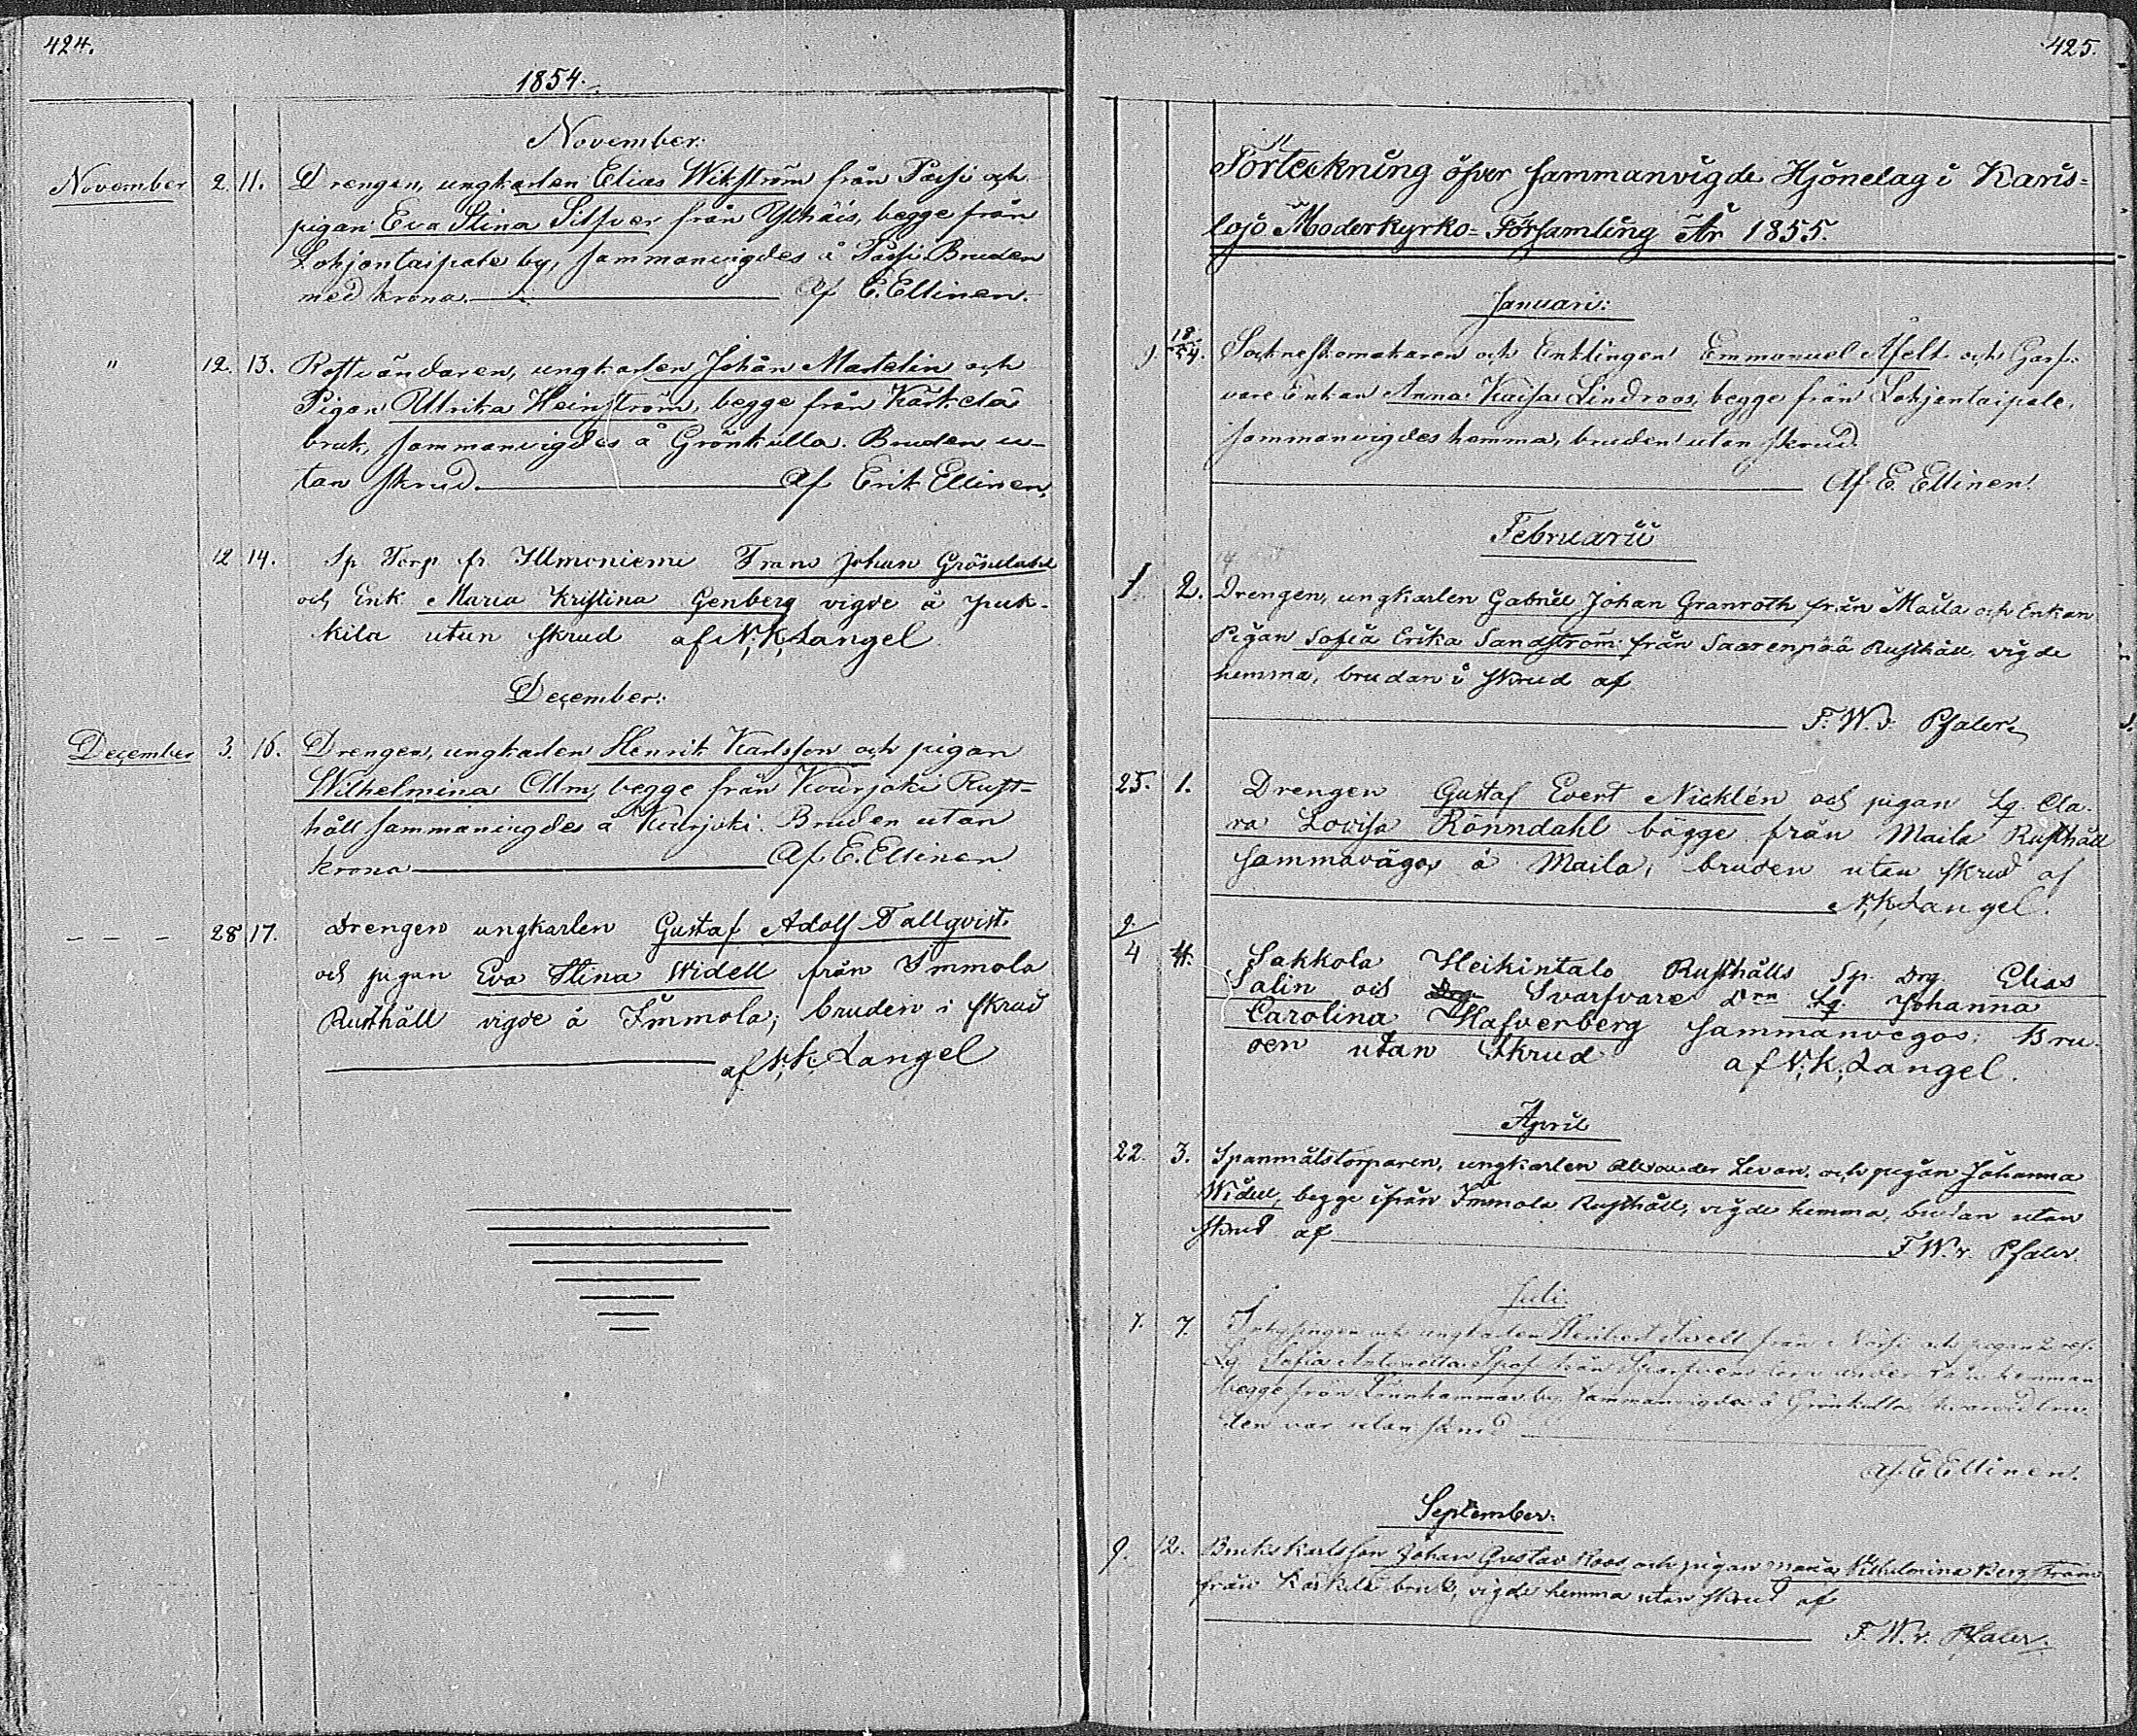 424.
1854.
November:
November 2. 11. Drengen, ungkarlen Elias Wikström från Passi och
pigan Eva Stina Silfver från Ylhäis, begge från
Lohjantaipale by, sammanvigdes å Passi. Bruden
med krona. Af E. Ellinen.
" 12. 13. ungkarlen Johan Martelin och
Pigan Ulrika Heinström, begge från Kärkelä
bruk, sammanvigdes å Grönkulla. Bruden u-
tan skrud. Af Erik Ellinen.
12 14. Sp. Torp. fr. Illmoniemi Frans Johan Gröndahl
och Enk Maria Kristina Genberg vigde å Juk-
kila utan skrud af N. K. Langel
December:
December 3. 16. Drengen, ungkarlen Henrik Karlsson och pigan
Wilhelmina Alm, begge från Kourjoki Rust-
håll sammanvigdes å Kourjoki. Bruden utan
krona Af E. Ellinen.
- - - 28 17. Drengen ungkarlen Gustaf Adolf Tallqvist
och pigan Eva Stina Widell från Immola
Rusthåll vigde å Immola; bruden i skrud
af N. K. Langel
425.
Förteckning öfver sammanvigde Hjonelag i Karis-
lojo Moderkyrko-Församling År 1855.
Januari:
9. 18/54. Sockneskomakaren och Enklingen Emmanuel Åfelt och Garf-
vare Enkan Anna Kaisa Lindroos, begge från Lohjantaipale,
sammanvigdes hemma, bruden utan skrud.
Af E. Ellinen.
Februarii
1 2. Drengen, ungkarlen Gabriel Johan Granroth från Maila och Enkan
Pigan Sofia Erika Sandström från Saarenpää Rusthåll, vigde
hemma, brudan i skrud af
F. W. v. Pfaler.
25. 1. Drengen Gustaf Evert Nicklén och pigan Lg. Cla-
ra Lovisa Rönndahl bägge från Maila Rusthåll
å Maila, bruden utan skrud af
N. K. Langel.
4 4. Sakkola Heikintalo Rusthålls Sp. Drg Elias
Salin och Svarfvare Drn Lg. Johanna
Carolina Hafverberg sammanvegos; Bru-
den utan Skrud af N. K. Langel.
April
22. 3. Spanmålstorparen, ungkarlen Alexander Levan och pigan Johanna
Widell, begge ifrån Immola Rusthåll, vigde hemma, brudan utan
skrud af F. W. v. Pfaler.
Juli.
7. 7. och ungkarlen från och pigan
Lg. Sofia Antonetta från under hemman
begge från Lönnhammar by sammanvigdes å Grönkulla bru-
den var utan skrud
Af E Ellinen.
September:
9. 12. Brukskarlsson Johan Gustav Roos och pigan Maria Vilhelmina Bergström
från Kärkelä bruk, vigde hemma utan skrud af
F. W. v. Pfaler.